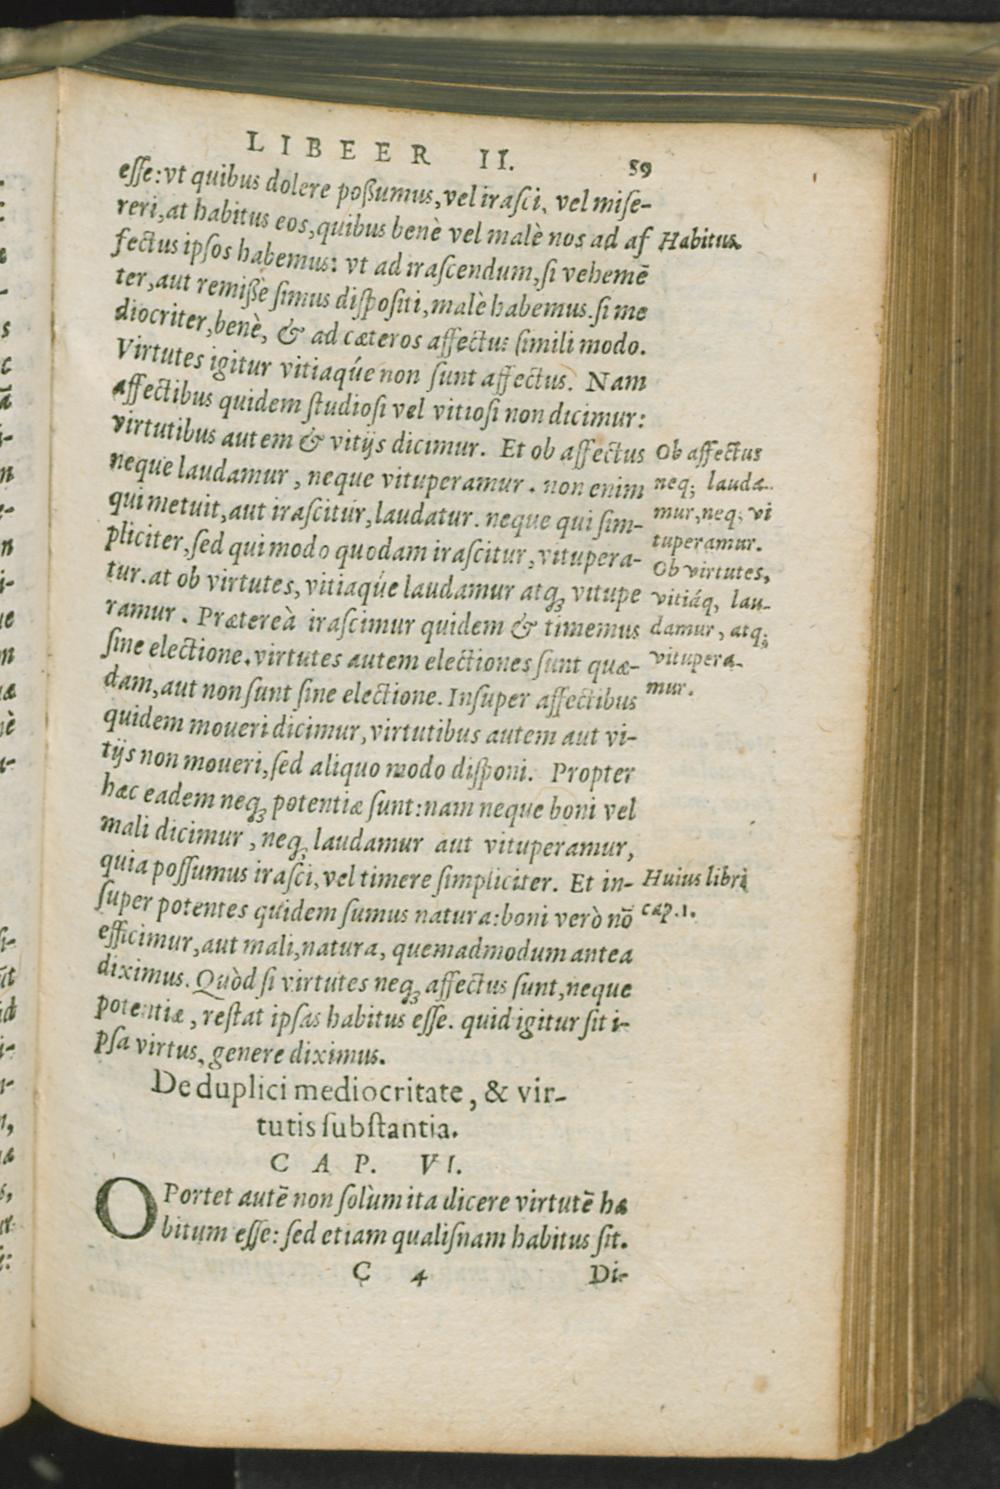 LIBEER II. 59
esse: vt quibus dolere poßumus, vel irasci, vel mise-
reri, at habitus eos, quibus benè vel malè nos ad af
Habitus
fectus ipsos habemus: vt ad irascendum, si vehemē
ter, aut remißè simus dispositi, malè habemus. si me
diocriter, benè, & ad cæteros affectus simili modo.
Virtutes igitur vitiaqúe non sunt affectus. Nam
affectibus quidem studiosi vel vitiosi non dicimur:
virtutibus autem & vitijs dicimur. Et ob affectus
neque laudamur, neque vituperamur. non enim
qui metuit, aut irascitur, laudatur. neque qui sim-
pliciter, sed qui modo quodam irascitur, vitupera-
tur. at ob virtutes, vitiaqúe laudamur atqꝫ vitupe
ramur. Prætereà irascimur quidem & timemus
sine electione. virtutes autem electiones sunt quæ-
dam, aut non sunt sine electione. Insuper affectibus
Ob affectus
neq; lauda-
mur, neq; vi
tuperamur.
Ob virtutes,
vitiáq, lau-
damur, atq;
vitupera-
mur.
quidem moueri dicimur, virtutibus autem aut vi-
tijs non moueri, sed aliquo modo disponi. Propter
hæc eadem neqꝫ potentiæ sunt: nam neque boni vel
mali dicimur, neqꝫ laudamur aut vituperamur,
quia possumus irasci, vel timere simpliciter. Et in-
super potentes quidem sumus natura: boni verò nō
Huius libri
cap. 1.
efficimur, aut mali, natura, quemadmodum antea
diximus. Quòd si virtutes neqꝫ affectus sunt, neque
potentiæ, restat ipsas habitus esse. quid igitur sit i-
psa virtus, genere diximus.
De duplici mediocritate, & vir-
tutis substantia.
CAP. VI.
OPortet autē non solùm ita dicere virtutē ha
bitum esse: sed etiam qualisnam habitus sit.
C 4 Di-